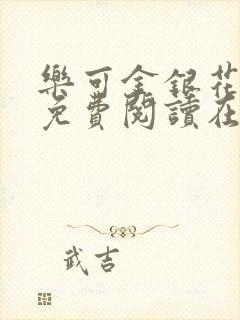 樂可金銀花
免費閱讀在
武吉